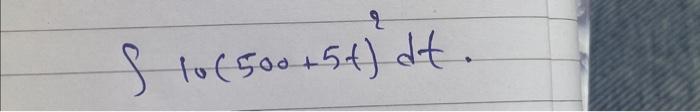 ∫ 10(500+5t)² dt.